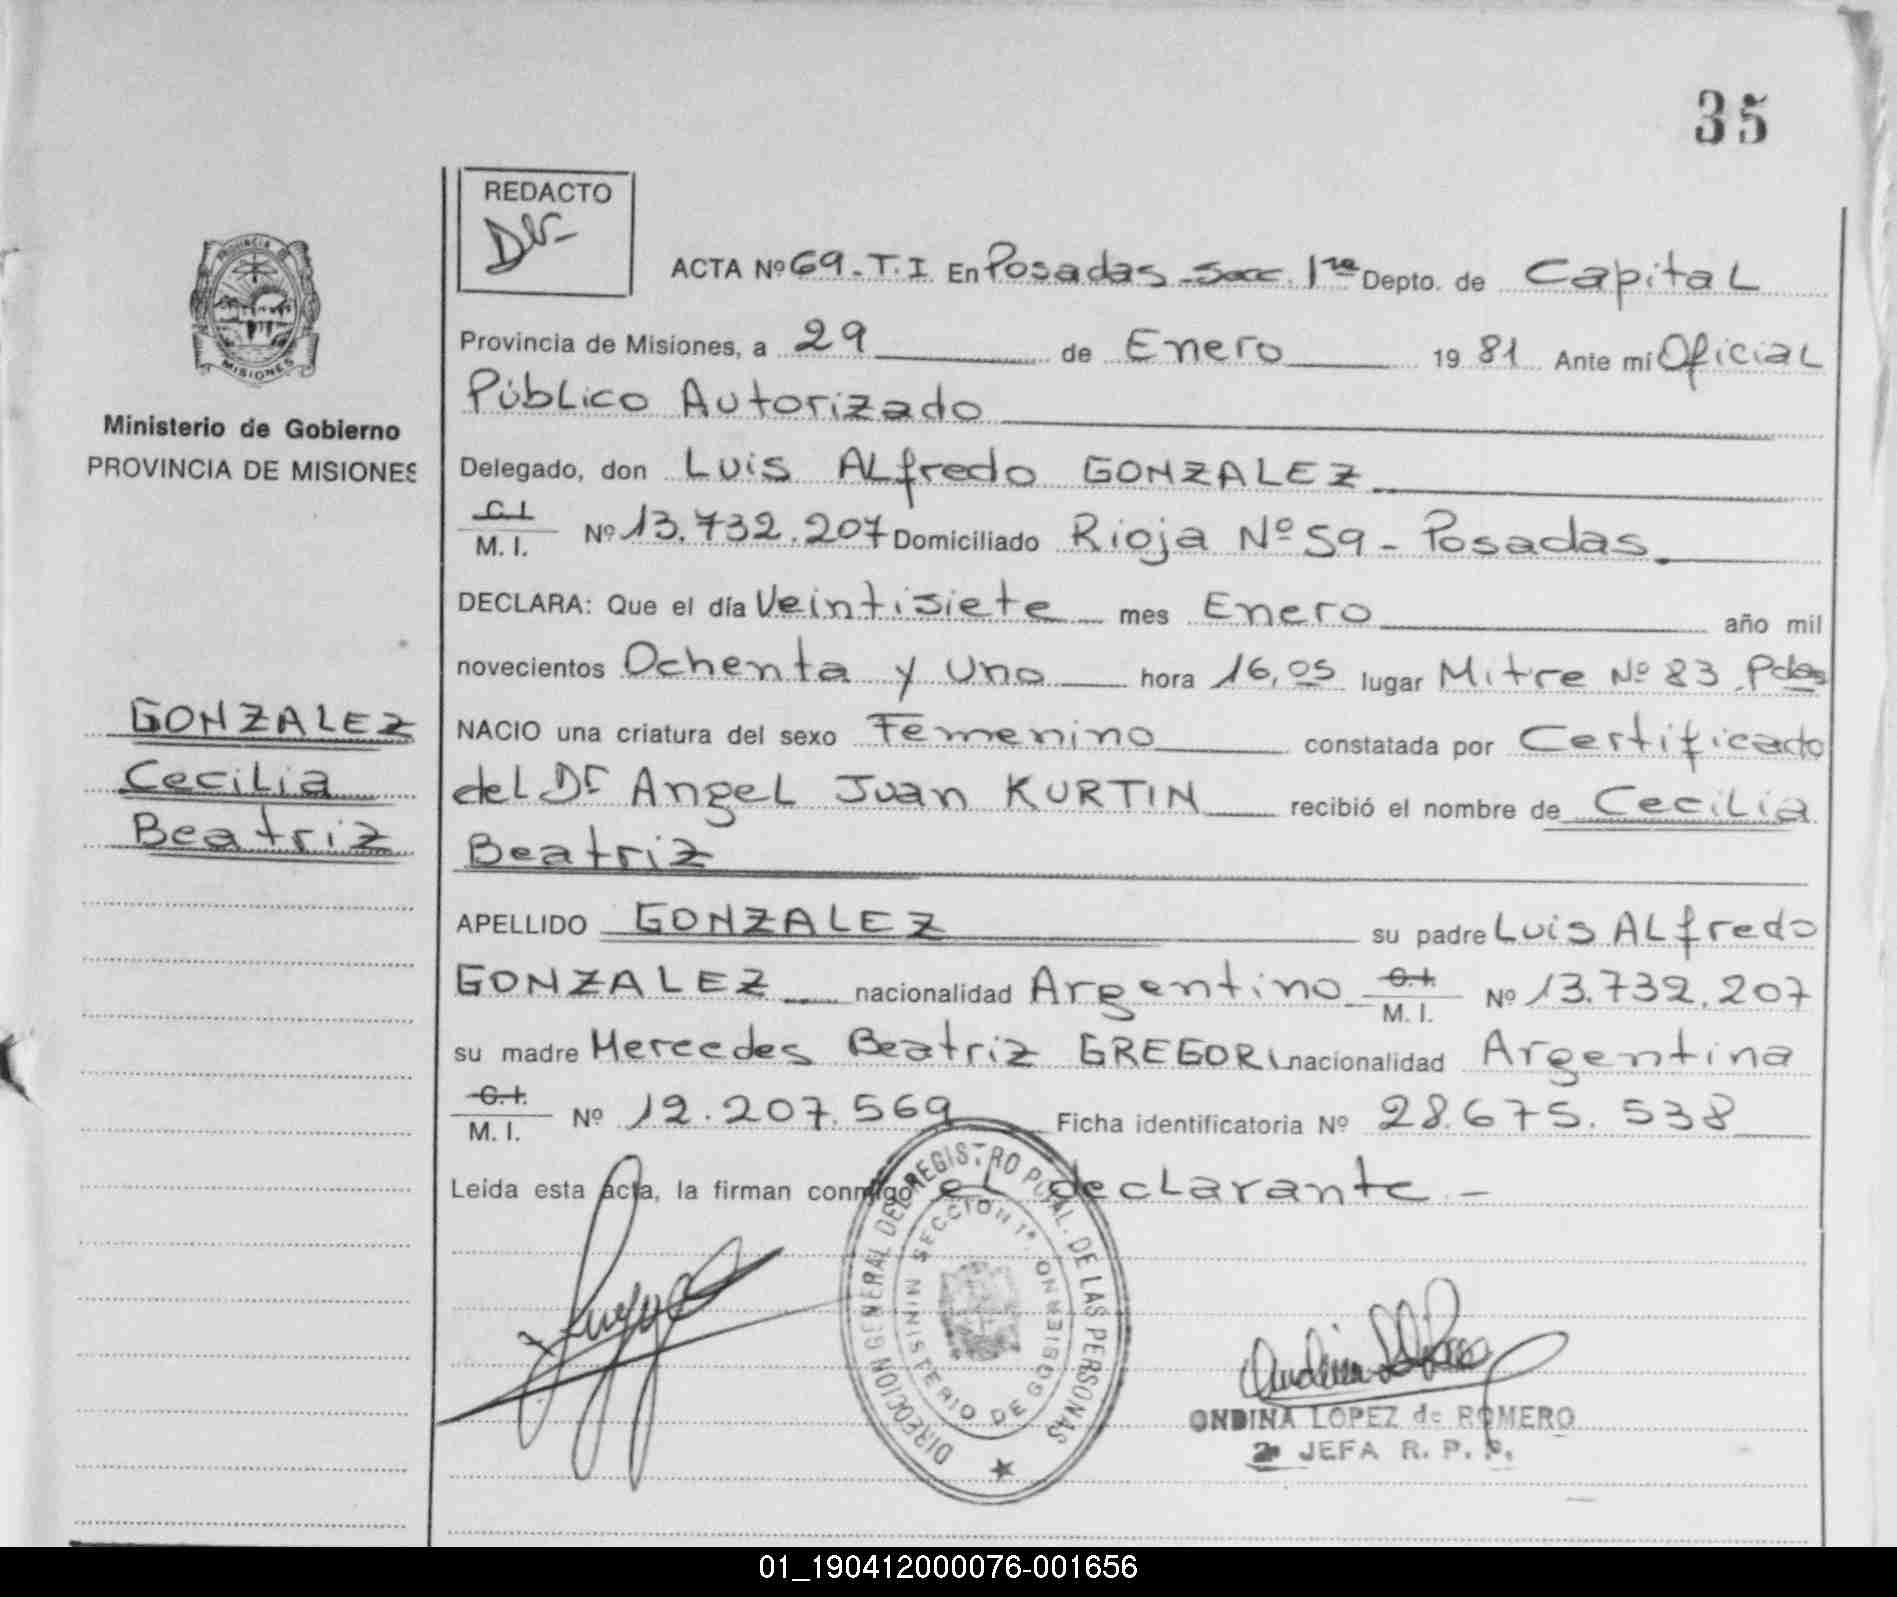 35
REDACTO
PROVINCIA DE
MISIONES
Ministerio de Gobierno
PROVINCIA DE MISIONES
GONZALEZ
Cecilia
Beatriz
ACTA Nº 69-T.I En Posadas-Secc. 1ra Depto. de Capital
Provincia de Misiones, a 29 de Enero 1981 Ante mi Oficial
Público Autorizado
Delegado, don Luis Alfredo GONZALEZ
C.I.
M. I. Nº 13.732.207 Domiciliado Rioja Nº 59 - Posadas
DECLARA: Que el día Veintisiete mes Enero año mil
novecientos Ochenta y Uno hora 16,05 lugar Mitre Nº 83. Pdas
NACIO una criatura del sexo Femenino constatada por Certificado
del Dr Angel Juan KURTIN recibió el nombre de Cecilia
Beatriz
APELLIDO GONZALEZ su padre Luis Alfredo
GONZALEZ nacionalidad Argentino C.I. M. I. Nº 13.732.207
su madre Mercedes Beatriz GREGORI nacionalidad Argentina
C.I.
M. I. Nº 12.207.569 Ficha identificatoria Nº 28.675.538
Leída esta acta, la firman conmigo el declarante -
DIRECCION GENERAL DEL REGISTRO PCIAL. DE LAS PERSONAS
SECCION 1ª.
MINISTERIO DE GOBIERNO
ONDINA LOPEZ de ROMERO
2ª JEFA R. P. P.
01_190412000076-001656